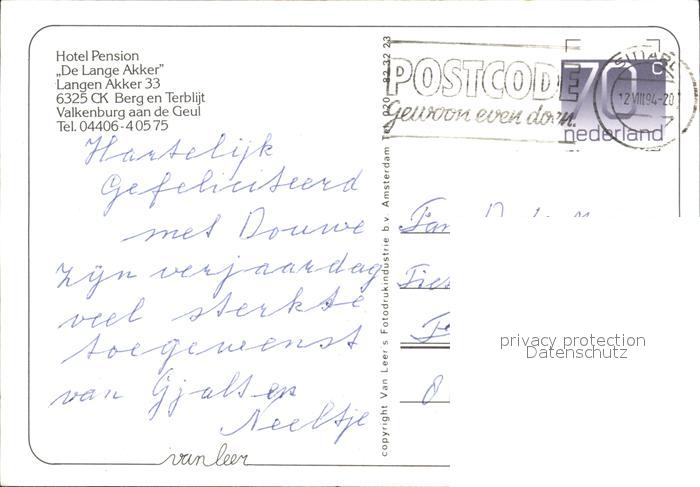 Hotel Pension
„De Lange Akker"
Langen Akker 33
6325 CK Berg en Terblijt
Valkenburg aan de Geul
Tel. 04406-40575
Hartelijk
Gefeliciteerd
met Douwe
zijn verjaardag
veel sterkte
toegewenst
van Gjalt en
Neeltje
van leer
copyright Van Leer's Fotodrukindustrie b.v. Amsterdam Tel. 020 - 82 32 23
POSTCODE
Gewoon even doen.
70 c
nederland
SITTARD
12 VIII 94-20
Fam
privacy protection
Datenschutz